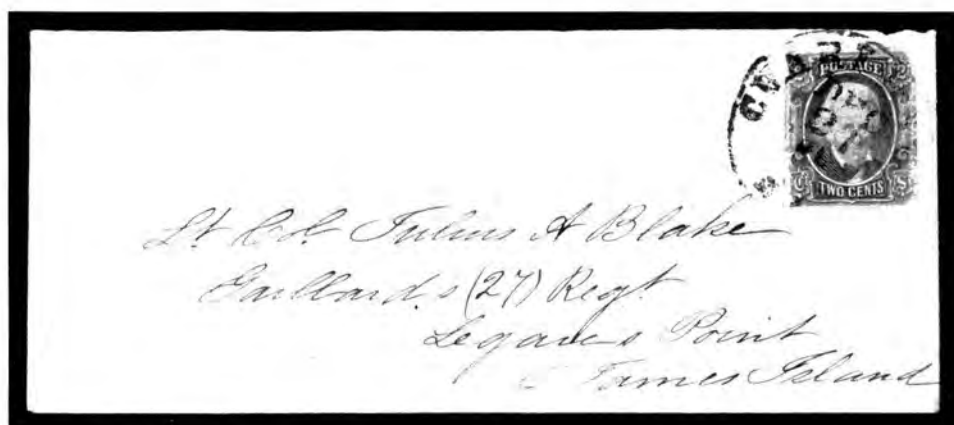 POSTAGE
TWO CENTS
C S
Lt Col. Julius A Blake
Gaillard's (27) Regt.
Legares Point
James Island